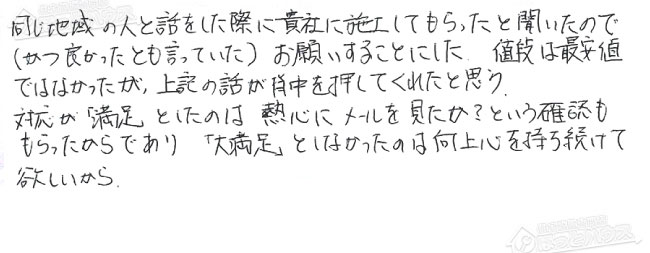 同じ地域の人と話をした際に貴社に施工してもらったと聞いたので
(かつ良かったとも言っていた) お願いすることにした. 値段は最安値
ではなかったが, 上記の話が背中を押してくれたと思う.
対応が「満足」としたのは 熱心に メールを見たか？という確認も
もらったからであり 「大満足」としなかったのは向上心を持ち続けて
欲しいから.